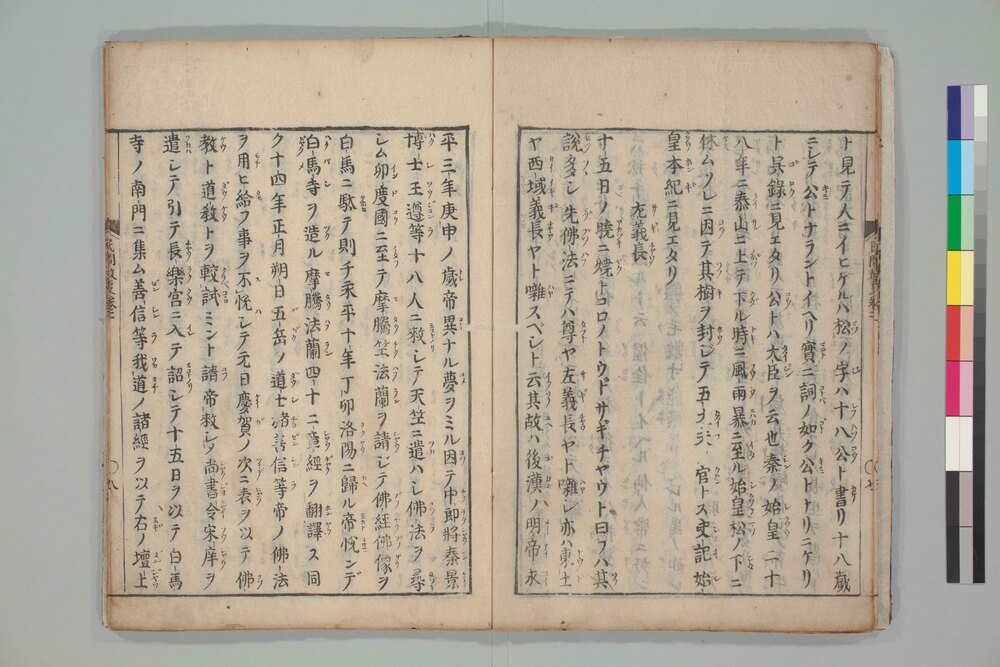 ト見テ人ニイヒケルハ松ノ字ハ十八公ト書リ十八歳
ニシテ公トナラントイヘリ實ニ詞ノ如ク公トナリニケリ
ト呉録ニ見エタリ公トハ大臣ヲ云也秦ノ始皇二十
八年ニ泰山ニ上テ下ル時ニ風雨暴ニ至ル始皇松ノ下ニ
休ムソレニ因テ其樹ヲ封シテ五大夫ノ官トス史記始
皇本紀ニ見エタリ
左義長
十五日ノ曉ニ燒トコロノトウドサギチヤウト曰フハ其
說多シ先佛法ニテハ尊ヤ左義長ヤト囃シ亦ハ東土
ヤ西域義長ヤト囃スベシト云其故ハ後漢ノ明帝永
平三年庚申ノ歲帝異ナル夢ヲミル因テ中郎將秦景
博士王遵等十八人ニ敕シテ天竺ニ遣ハシ佛法ヲ尋
シム印度國ニ至テ摩騰竺法蘭ヲ請シテ佛經佛像ヲ
白馬ニ駄テ則チ永平十年丁卯洛陽ニ歸ル帝悅ンデ
白馬寺ヲ造ル摩騰法蘭四十二章經ヲ翻譯ス同
ク十四年正月朔日五岳ノ道士諸善信等帝ノ佛法
ヲ用ヒ給フ事ヲ不悅シテ元日慶賀ノ次ニ表ヲ以テ佛
教ト道教トヲ較試ミント請帝敕シテ尚書令宋庠ヲ
遣シテ引テ長樂宮ニ入テ詔シテ十五日ヲ以テ白馬
寺ノ南門ニ集ム善信等我道ノ諸經ヲ以テ右ノ壇上